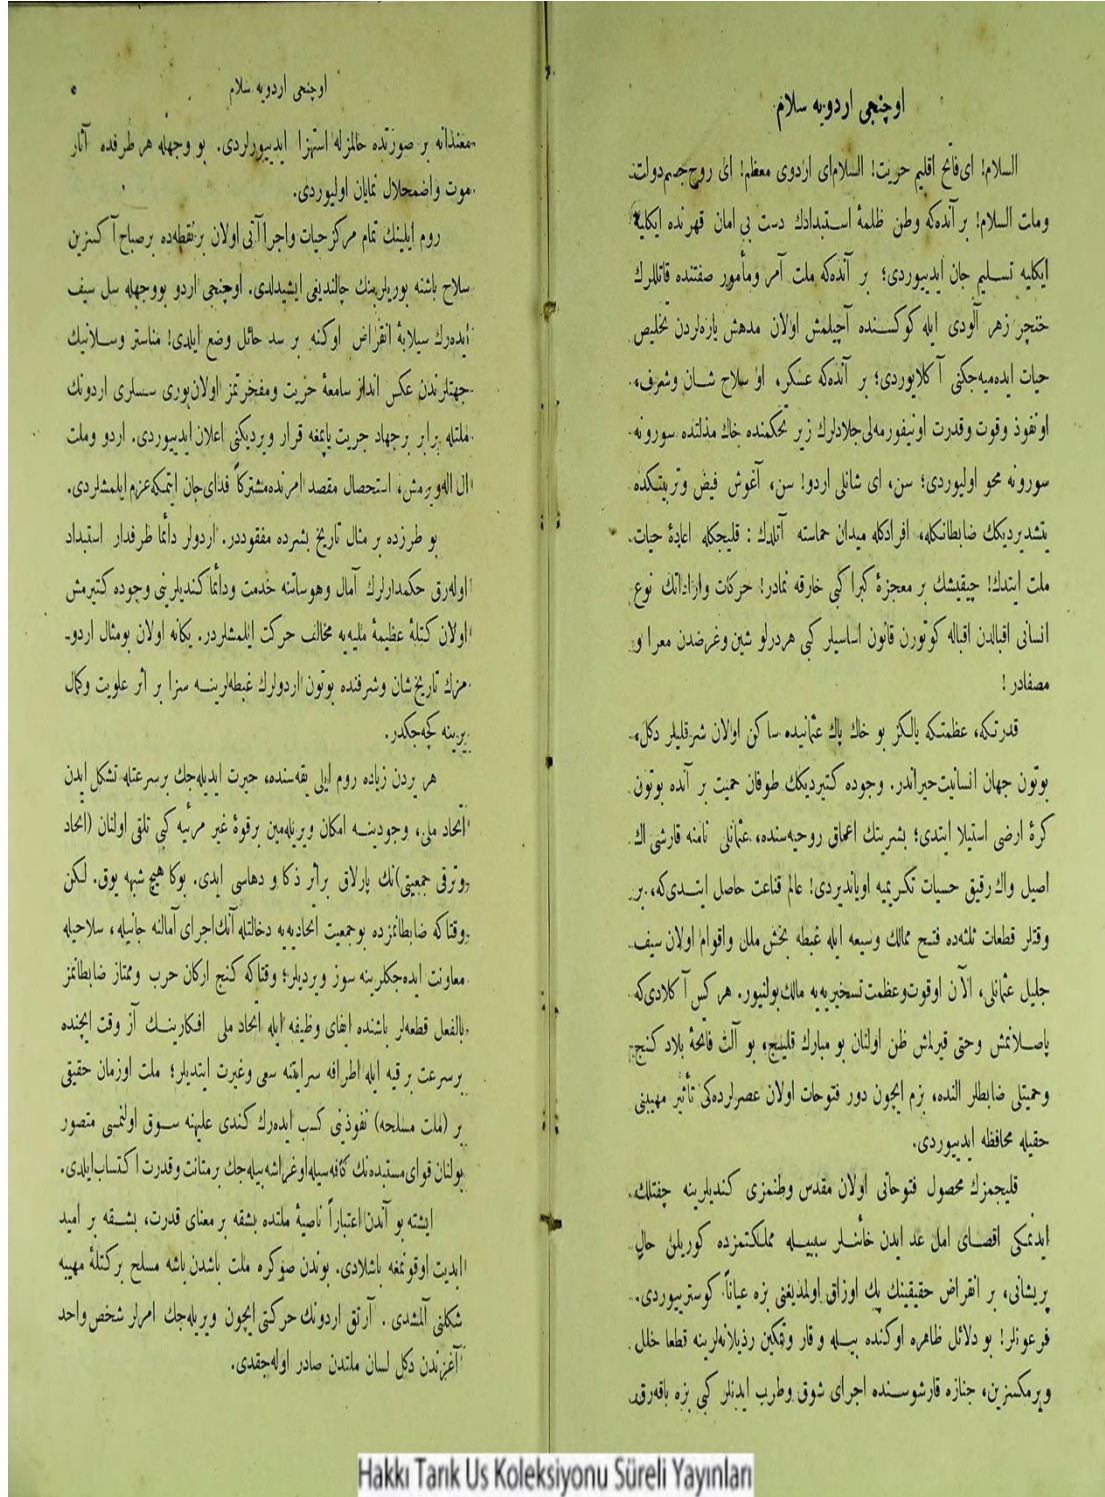 اوچنجی اردویه سلام
السلام! ای فاتح اقلیم حریت! السلام ای اردوی معظم! ای روح جسم دولت
وملت السلام! بر آنده‌که وطن ظلمهٔ استبدادك دست بی امان قهرنده ایکلیه
ایکلیه تسلیم جان ایدییوردی؛ بر آنده‌که ملت آمر ومأمور صفتنده قاتللرك
خنجر زهر آلودی ایله کوکسنده آچیلمش اولان مدهش یاره‌لردن تخلیص
حیات ایده‌میه‌جکنی آکلایوردی؛ بر آنده‌که عسکر، او سلاح شان وشرف،
اونفوذ وقوت وقدرت اونیفورمه‌لی جلادلرك زیر تحکمنده خاك مذلتده سورونه
سورونه محو اولیوردی؛ سن، ای شانلی اردو! سن، آغوش فیض وتربیتکده
یتشدیردیکك ضابطانکله، افرادکله میدان حماسته آتلدك : قلیجکله اعادهٔ حیات
ملت ایتدك! چیقیشك بر معجزهٔ کبرا کبی خارقه نمادر! حرکات وازاداتك نوع
انسانی اقبالدن اقباله کوتورن قانون اساسیلر کبی هردرلو شین وغرضدن معرا و
مصفادر !
قدرتکه، عظمتکه یالکز بو خاك پاك عثمانیده ساکن اولان شرقلیلر دکل،
بوتون جهان انسانیت حیراندر. وجوده کتیردیکك طوفان حمیت بر آنده بوتون
کرهٔ ارضی استیلا ایتدی؛ بشریتك اعماق روحیه‌سنده، عثمانلی نامنه قارشی اك
اصیل واك رقیق حسیات تکریمیه اویاندیردی! عالم قناعت حاصل ایتدی‌که، بر
وقتلر قطعات ثلثه‌ده فتح ممالك وسیعه ایله غبطه بخش ملل واقوام اولان سیف
جلیل عثمانلی، الآن اوقوت وعظمت تسخیریه‌یه مالك بولنیور. هر کس آکلادی‌که
پاصلانمش وحتی قیرلمش ظن اولنان بو مبارك قلینچ، بو آلت فاتحهٔ بلاد کنج
وحمیتلی ضابطلر النده، بزم ایچون دور فتوحات اولان عصرلرده‌کی تأثیر مهیبنی
حقیله محافظه ایدییوردی.
قلیجمزك محصول فتوحاتی اولان مقدس وطنمزی کندیلرینه چفتلك
ایدنمکی اقصای امل عد ایدن خائنلر سببیله مملکتمزده کوریلن حال
پریشانی، بر انقراض حقیقینك پك اوزاق اولمدیغنی بزه عیاناً کوستریییوردی.
فرعونلر! بو دلائل ظاهره اوکنده بیله و قار وتمکین رذیلانه‌لرینه قطعا خلل
ویرمکسزین، جنازه قارشوسنده اجرای شوق وطرب ایدنلر کبی بزه باقه‌رق
اوچنجی اردویه سلام
٥
مغندانه بر صورتده حالمزله استهزا ایدییورلردی. بو وجهله هر طرفده آثار
موت واضمحلال نمایان اولیوردی.
روم ایلینك تمام مرکز حیات واجراآتی اولان بر نقطه‌ده بر صباح آکسزین
سلاح باشنه بوریلرینك چالندیغی ایشیدلدی. اوچنجی اردو بووجهله سل سیف
ایده‌رك سیلابهٔ انقراض اوکنه بر سد حائل وضع ایلدی! مناستر وسلانیك
جهتلرندن عکس انداز سامعهٔ حریت ومفخرتمز اولان بوری سسلری اردونك
ملتله برابر بر جهاد حریت یاپمغه قرار ویردیکنی اعلان ایدییوردی. اردو وملت
ال اله ویرمش، استحصال مقصد امرنده مشترکاً فدای جان ایتمکه عزم ایلمشلردی.
بو طرزده بر مثال تاریخ بشرده مفقوددر. اردولر دائما طرفدار استبداد
اوله‌رق حکمدارلرك آمال وهوساتنه خدمت ودائما کندیلرینی وجوده کتیرمش
اولان کتلهٔ عظیمهٔ ملیه‌یه مخالف حرکت ایلمشلردر. یکانه اولان بومثال اردو-
مزك تاریخ شان وشرفنده بوتون اردولرك غبطه‌لرینه سزا بر اثر علویت وکمال
یرینه کچه‌جکدر.
هر یردن زیاده روم ایلی یقه‌سنده، حیرت ایدیله‌جك بر سرعتله تشکل ایدن
اتحاد ملی، وجودینه امکان ویریله‌مین بر قوهٔ غیر مرئیه کبی تلقی اولنان (اتحاد
وترقی جمعیتی)نك پارلاق بر اثر ذکا و دهاسی ایدی. بوکا هیچ شبهه یوق. لکن
وقتاکه ضابطانمزده بو جمعیت اتحادیه‌یه دخالتله آنك اجرای آمالنه جانیله، سلاحیله
معاونت ایده‌جکلرینه سوز ویردیلر؛ وقتاکه کنج ارکان حرب وممتاز ضابطانمز
بالفعل قطعه‌لر باشنده ایفای وظیفه ایله اتحاد ملی افکارینك آز وقت ایچنده
بر سرعت برقیه ایله اطرافه سرایتنه سعی وغیرت ایتدیلر؛ ملت اوزمان حقیقی
بر (ملت مسلحه) نفوذینی کسب ایده‌رك کندی علیهنه سوق اولنمسی متصور
بولنان قوای مستبده‌نك کافه‌سیله اوغراشه‌بیله‌جك بر متانت وقدرت اکتساب ایلدی.
ایشته بو آندن اعتباراً ناصیهٔ ملتده بشقه بر معنای قدرت، بشقه بر امید
ابدیت اوقونمغه باشلادی. بوندن صوکره ملت باشدن باشه مسلح بر کتلهٔ مهیبه
شکلنی آلمشدی . آرتق اردونك حرکتی ایچون ویریله‌جك امرلر شخص واحد
آغزندن دکل لسان ملتدن صادر اوله‌جقدی.
Hakkı Tarık Us Koleksiyonu Süreli Yayınları